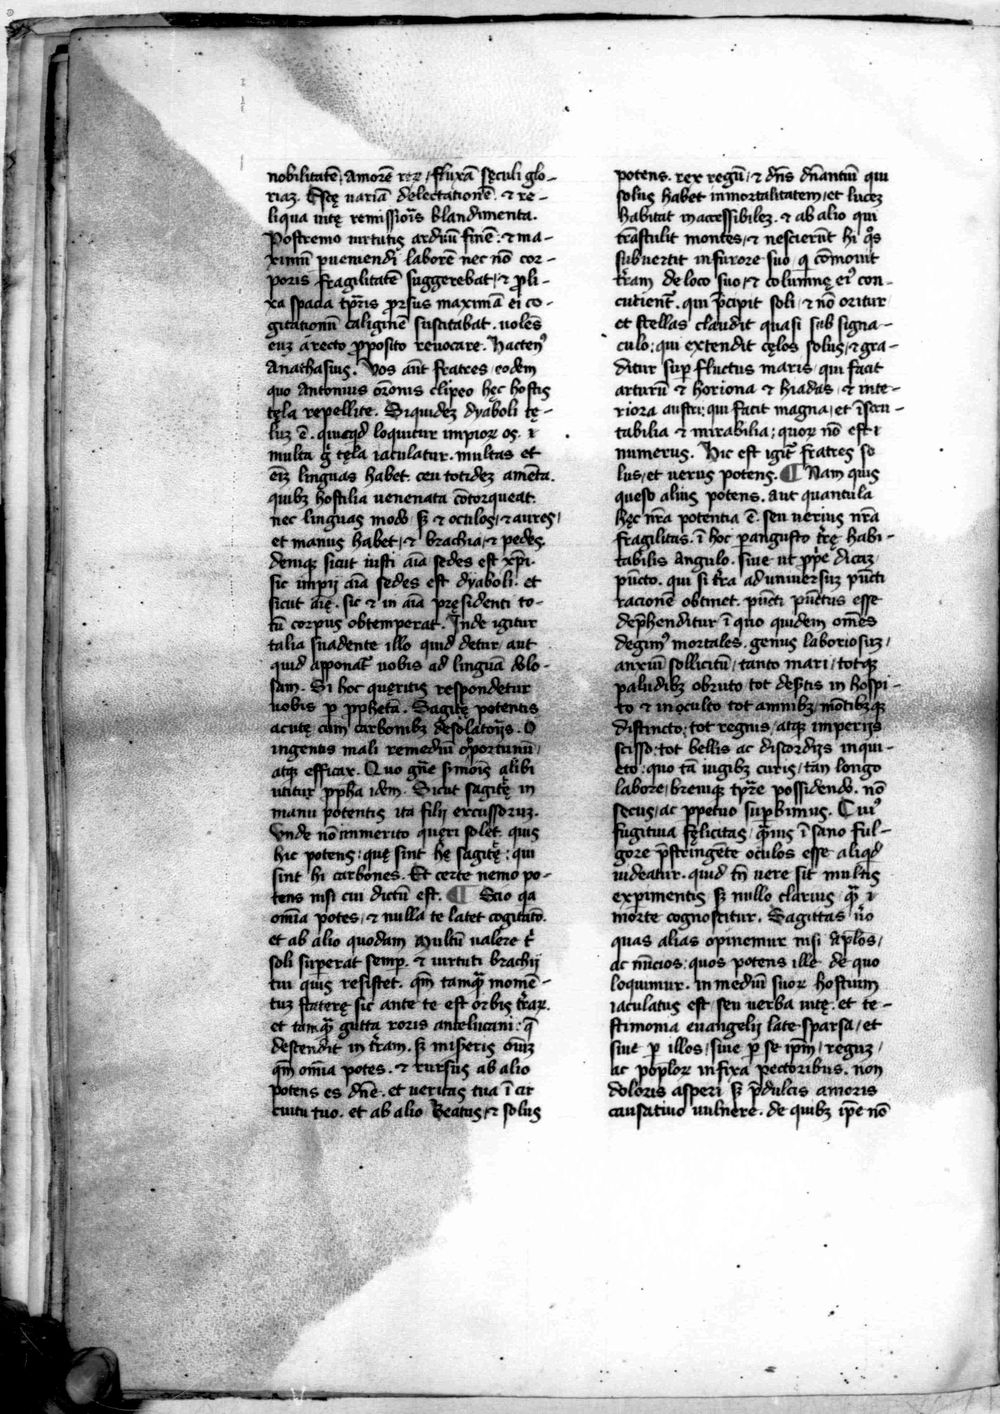 nobilitatē, Amorē reꝝ, fluxā sęculi glo-
riaꝫ. Escę uariā delectationē. ⁊ re-
liqua uitę remissiōis blandimenta.
Postremo uirtutis arduū finē: ⁊ ma-
ximū pueniendi laborē nec nō cor-
poris fragilitatē suggerebat, ⁊ ꝓli-
xa spacia tp̄ris prorsus maximā ei co-
gitationū caliginē suscitabat. uolēs
euꝫ a recto ꝓposito reuocare. Hactenꝰ
Anathasius. Vos aūt fratres, eodem
quo Antonius or̄onis clipeo hęc hostis
tęla repellite. Siquideꝫ dyaboli tę-
luꝫ ē. quicqd loquitur impioꝝ os. ⁊
multa g̊ tęla iaculatur. multas et
eīꝫ linguas habet. ceu totideꝫ amēta.
quibꝫ hostilia uenenata cōtorqueat.
nec linguas modo, sꝫ ⁊ oculos, ⁊ aures,
et manus habet, ⁊ brachia, ⁊ pedes.
deniqꝫ sicut iusti aīa sedes est xp̄i.
sic impij aīa sedes est dyaboli. et
sicut aīę. sic ⁊ in aīa pręsidenti to-
tū corpus obtemperat. Inde igitur
talia suadente illo quid detur, aut
quid apponat uobis ad linguā dolo-
sam. Si hoc quęritis respondetur
uobis ꝑ ꝓphetā. Sagitę potentis
acutę cum carbonibꝫ desolatorijs. O
ingentis mali remediū oportunū,
atqꝫ efficax. Quo gn̄e sermōis alibi
utitur ꝓpha idem. Sicut sagitę in
manu potentis ita filij excussoruꝫ.
Vnde nō immerito quęri solet. quis
hic potens, quę sint hę sagitę: qui
sint hi carbones. Et certe nemo po-
tens nisi cui dictū est. ¶ Scio qa
omīa potes, ⁊ nulla te latet cogitatō.
et ab alio quodam Multū ualēre tͥ
soli superat semꝑ. ⁊ uirtuti brachij
tui quis resistet. qm̄ tamqꝫ momē-
tuꝫ staterę sic ante te est orbis tr̄aꝝ.
et tamqꝫ gutta roris antelucani: q̄
descendit in tr̄am. sꝫ miseris oīuꝫ
qm̄ omīa potes. ⁊ rursus ab alio
potens es dn̄e. et ueritas tua ī cir
cuitu tuo. et ab alio Beatus, ⁊ solus
potens. rex regū, ⁊ dn̄s dn̄antiū qui
solus habet inmortalitatem, et luceꝫ
habitat inaccessibileꝫ. ⁊ ab alio qui
trāstulit montes, ⁊ nescierūt hi q̊s
subuertit in furore suo, q cōmouit
tr̄am de loco suo, ⁊ columnę eiꝰ con-
cutient. qui p̄cipit soli, ⁊ nō oritur,
et stellas claudit quasi sub signa-
culo: qui extendit cęlos solus, ⁊ gra-
ditur suꝑ fluctus maris, qui facit
arturū ⁊ horiona ⁊ hiadas, ⁊ inte-
riora austri: qui facit magna, et īscru-
tabilia ⁊ mirabilia: quoꝝ nō est
numerus. Hic est igit fratres so
lus, et uerus potens. ¶ Nam quis
queso alius potens. aut quantula
hęc nr̄a potentia ē. seu uerius nr̄a
fragilitas. ī hoc ꝑangusto tr̄ę habi-
tabilis angulo. siue ut ꝓpe dicaꝫ,
pūcto. qui si tr̄a ad uniuersuꝫ pūcti
racionē obtinet. pūcti pūctus esse
dep̄henditur ī quo quidem om̄es
degimꝰ mortales. genus laboriosuꝫ,
anxiū sollicitū, tanto mari, totqꝫ
paludibꝫ obruto, tot desertis in hospi-
to ⁊ in oculto tot amnibꝫ, mōtibꝫqꝫ
distincto, tot regnis, atqꝫ imperijs
scisso, tot bellis ac discordijs inqui-
eto: quo tā iugibꝫ curis, tan longo
labore, breuiqꝫ tp̄re possidendo. nō
secus, ac ꝑpetuo suꝑbimus. Cuiꝰ
fugitiua fęlicitas, q̄uis ī sano ful-
gore p̄stringēte oculos esse aliqd
uideatur. quid tn̄ uere sit multis
exꝑimentis sꝫ nullo clarius, qꝫ ī
morte cognoscitur. Sagittas ůo
quas alias opinemur nisi Ap̄los,
ac nūcios: quos potens ille de quo
loquimur. in mediū suoꝝ hostium
iaculatus est, seu uerba uitę. et te-
stimonia euangelij late sparsa, et
siue ꝑ illos, siue ꝑ se ip̄m, reguꝫ,
ac pop̄loꝝ infixa pectoribus. non
doloris asperi sꝫ p̄dulcis amoris
causatiuo uulnere. de quibꝫ ip̄e nō